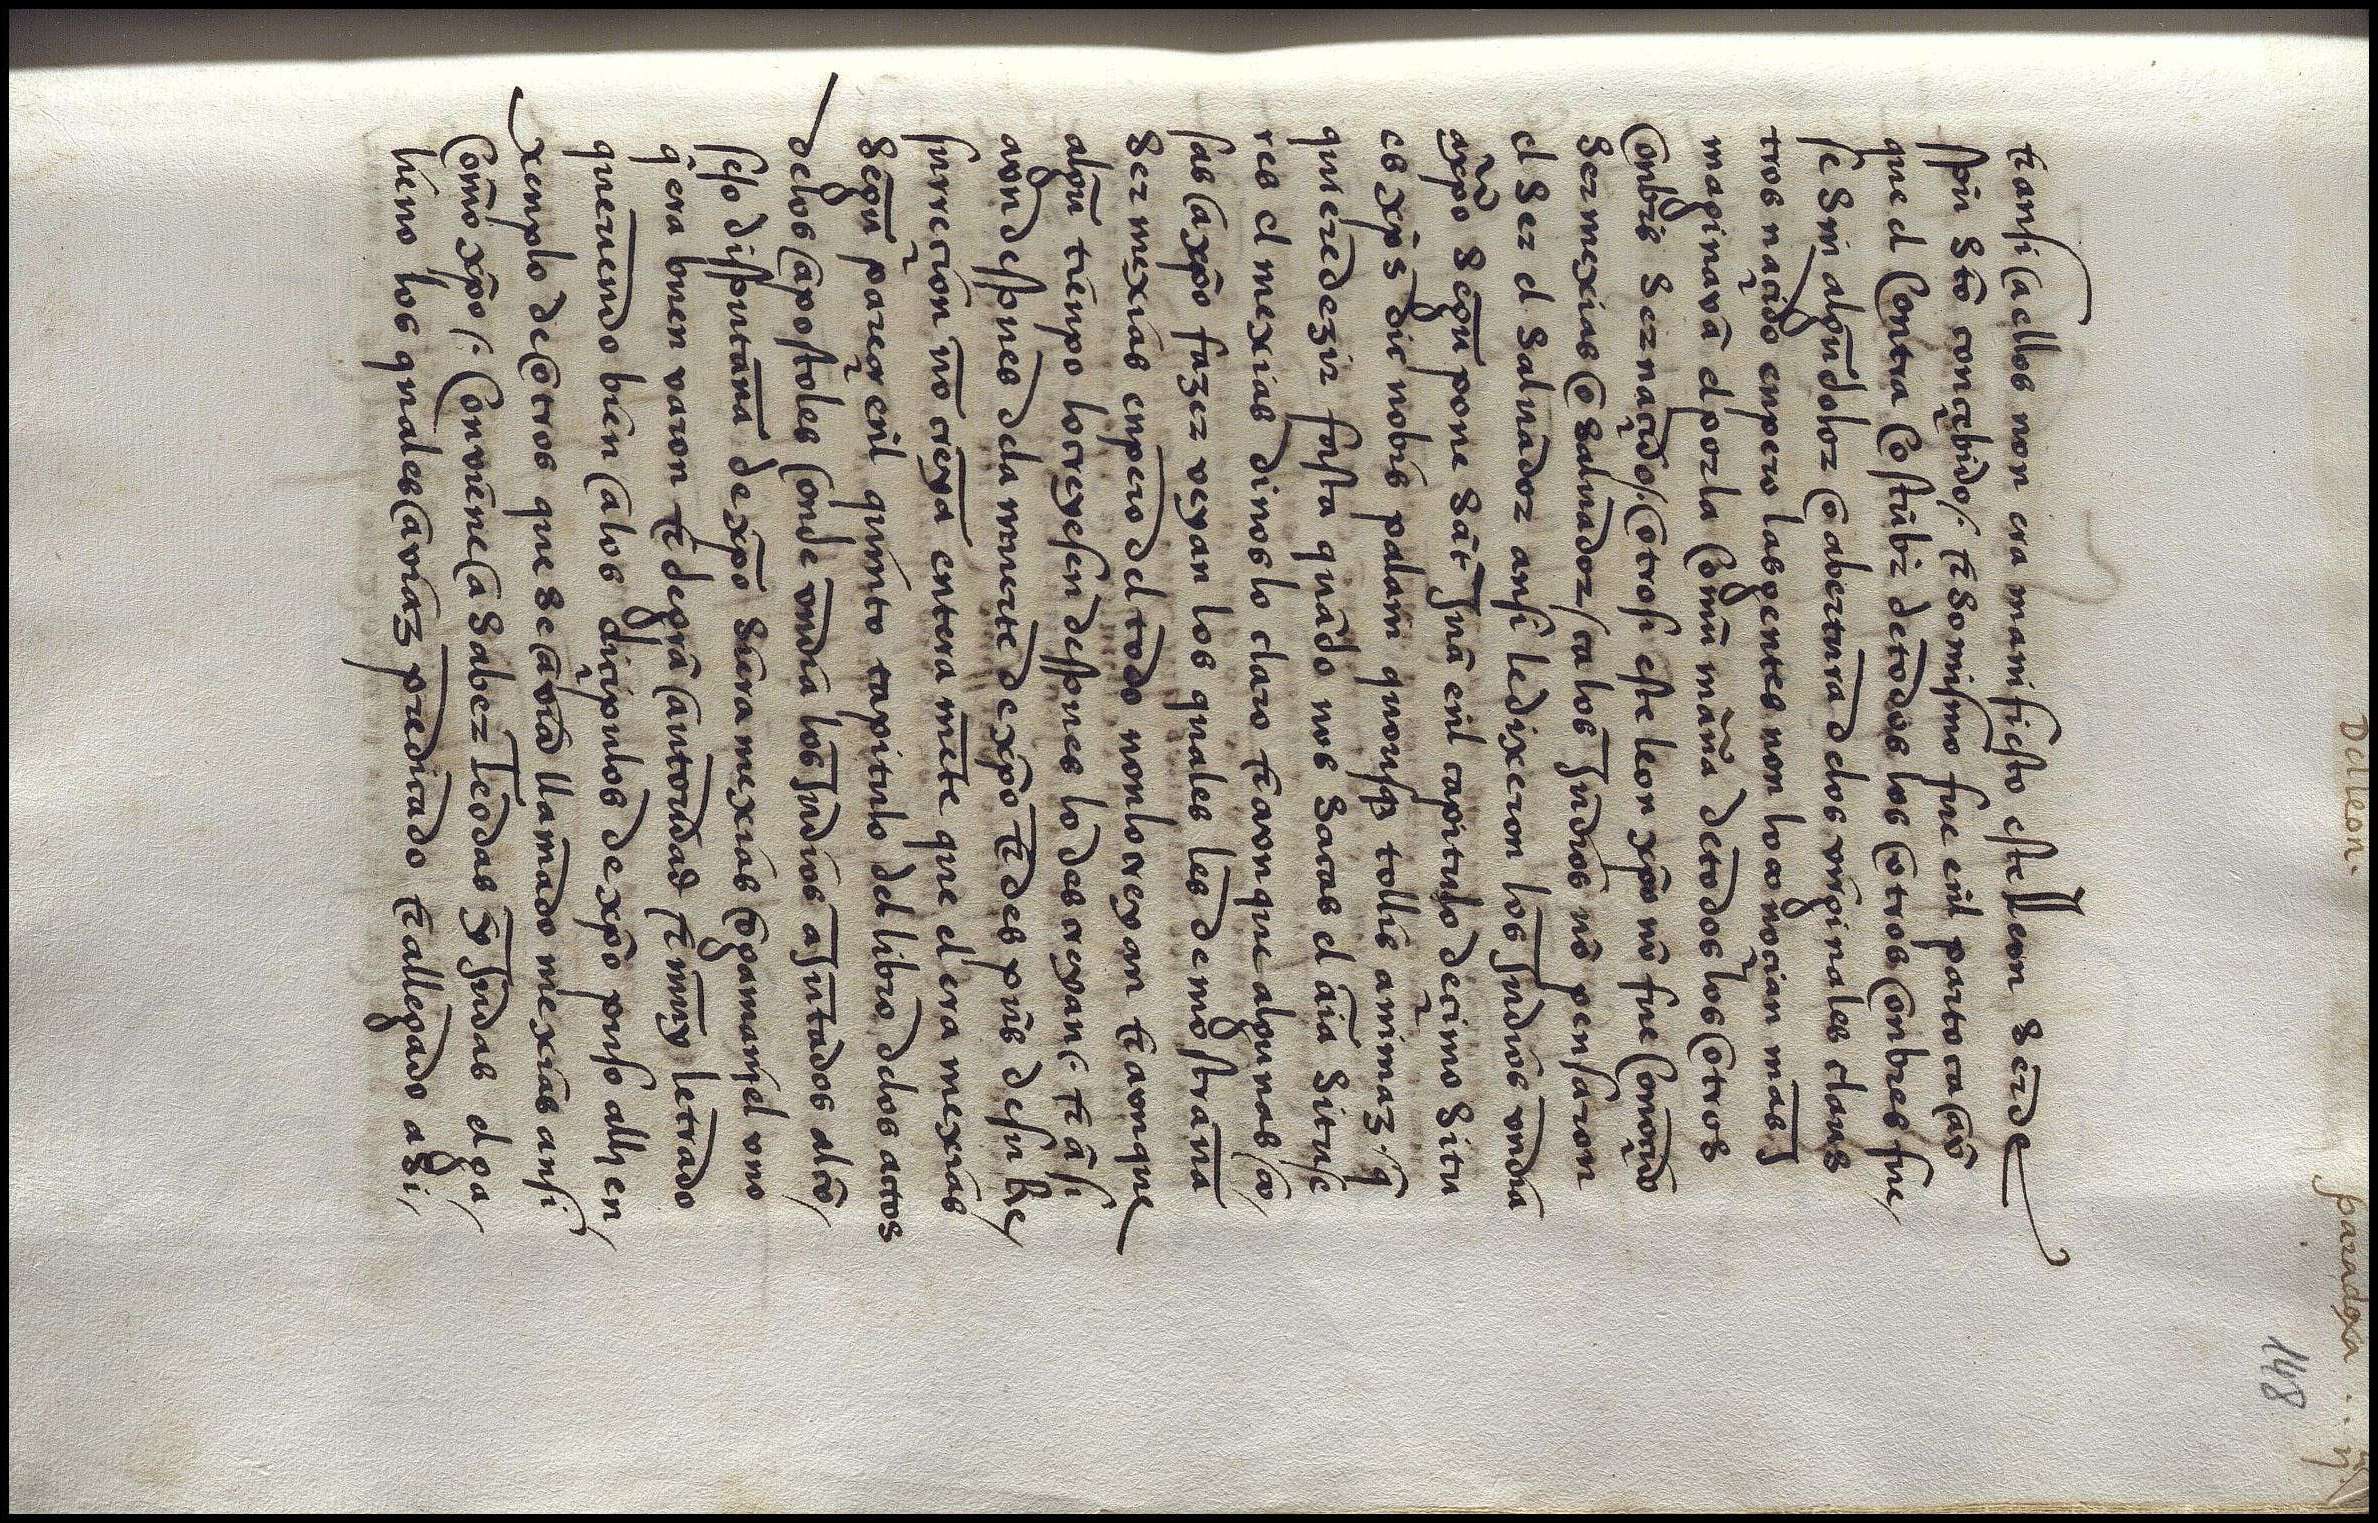 Del leon. paradoxa
148
τ ansi a ellos non era manifiesto este leon ser de
spũ sčto conçebido /. τ so mismo fue enl parto ca avn̄
que el contra costũbr de todos los otros onbres fue /
se sin algũ dolor o abertura delos virginales claus
tros naçido enpero las gentes non lo conoçian mas J
maginavã el por la comũ mañã de todos los otros
onbrs ser naçido /. otrosi este leon xp̄o nõ fue conoçido
ser mexias o saluador / ca los Judios nõ pensaron
el ser el saluador ansi le dixeron los Judios vn dia
a xp̄o segũ pone sãt Juã enl capitulo decimo si tu
es xp̄s dic nobis palam quousq̃ tollis animaz .q̃
quiere dezir fasta quãdo nos sacas el aĩa si tu se
res el mexias dinos lo claro τ avn que algunas co /
sas a xp̄o fazer veyan los quales les demostrauã
ser mexias enpero del todo non lo creyan τ avn que
algũ tienpo lo creyesen despues lo descreyan .τ ã si
avn despues dela muerte de xp̄o τ despũs de su Re /
surrecion nõ creyã entera mẽte que el era mexias
segũ pareçe enl quinto capitulo del libro delos actos
delos apostoles onde vn dia los Judios aJũtados alcõ /
sejo disputauã de xp̄o si era mexias o gamaniel vno
q̃ era buen varon τ de grã autoridad τ muy letrado
queriendo bien a los diçipulos de xp̄o puso alli en
xenplo de otros que se aviã llamado mexias ansi /
como xp̄o /. conviene a saber Teodas y Judas el ga /
lileo los quales aviaz predicado τ allegado a si /